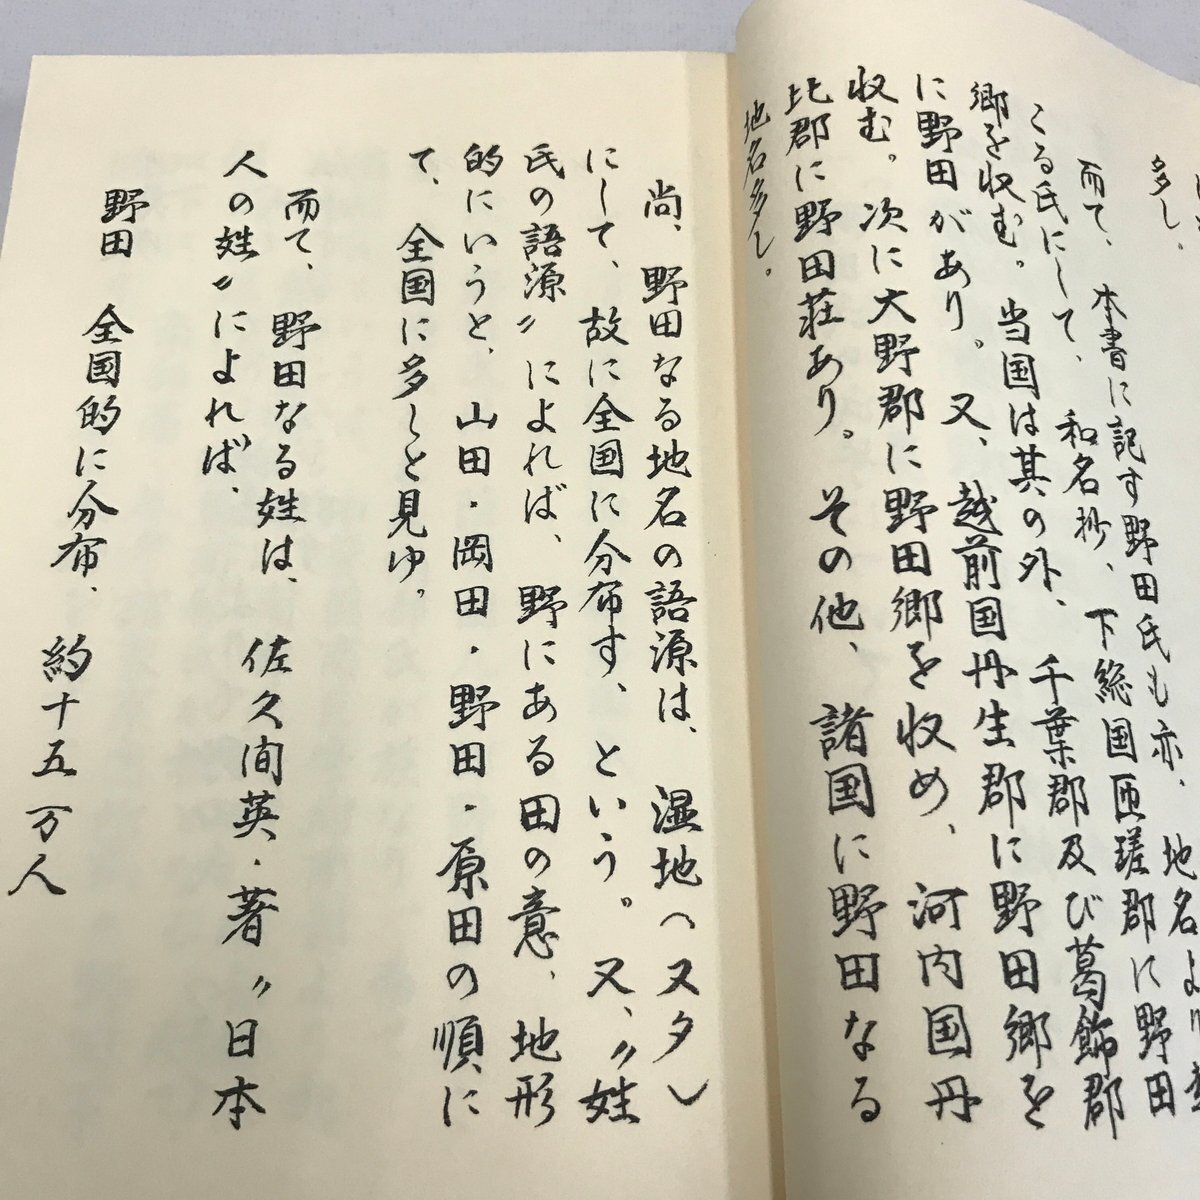 多し。
而て、本書に記す野田氏も亦、地名より
こる氏にして、和名抄、下総国匝瑳郡に野田
郷を収む。当国は其の外、千葉郡及び葛飾郡
に野田があり。又、越前国丹生郡に野田郷を
収む。次に大野郡に野田郷を収め、河内国丹
比郡に野田荘あり。その他、諸国に野田なる
地名多し。
尚、野田なる地名の語源は、湿地(ヌタ)
にして、故に全国に分布す、という。又、〃姓
氏の語源〃によれば、野にある田の意、地形
的にいうと、山田・岡田・野田・原田の順に
て、全国に多しと見ゆ。
而て、野田なる姓は、佐久間英・著〃日本
人の姓〃によれば、
野田 全国的に分布、約十五万人